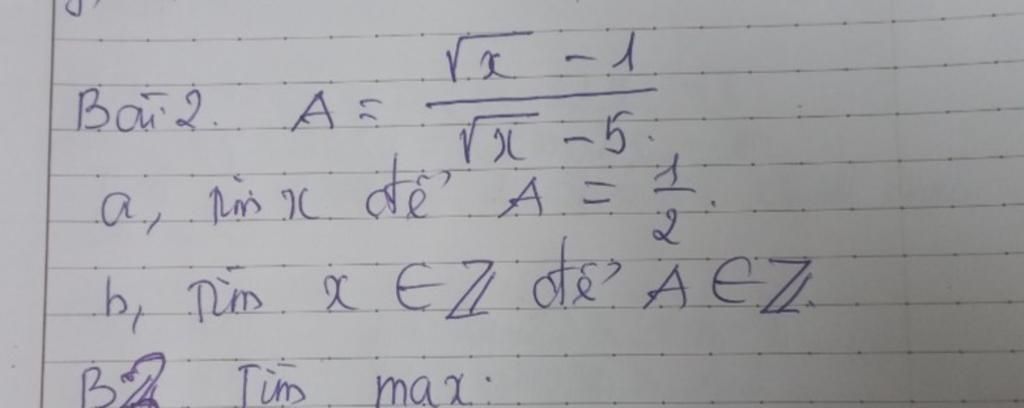 Bài 2. A = \frac{\sqrt{x} - 1}{\sqrt{x} - 5}.
a, Tìm x để A = \frac{1}{2}.
b, Tìm x ∈ Z để A ∈ Z.
B2 Tìm max.